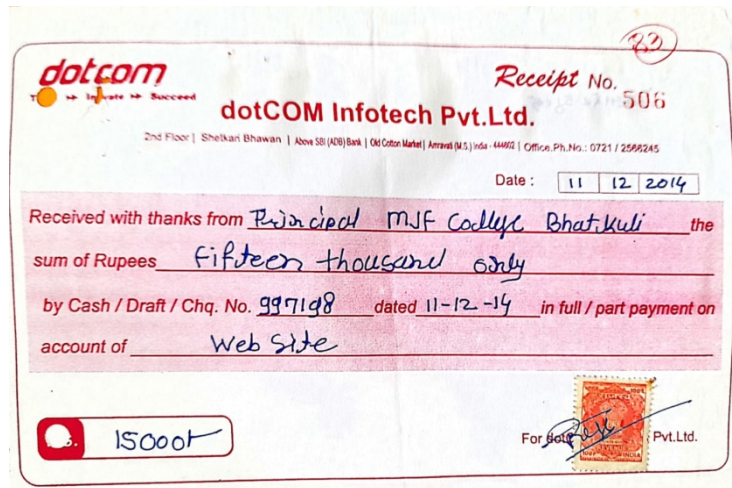 83
dotcom
Receipt No. 506
Succeed
dotCOM Infotech Pvt.Ltd.
2nd Floor | Shetkari Bhawan | Above SBI (ADB) Bank | Old Cotton Market | Amravati (M.S.) India - 444602 | Office.Ph.No.: 0721 / 2568245
Date : 11 12 2014
Received with thanks from Principal MJF College Bhatkuli the
sum of Rupees Fifteen thousand only
by Cash / Draft / Chq. No. 997198 dated 11-12-14 in full / part payment on
account of Web Site
15000/-
For dotc Pvt.Ltd.
INDIA